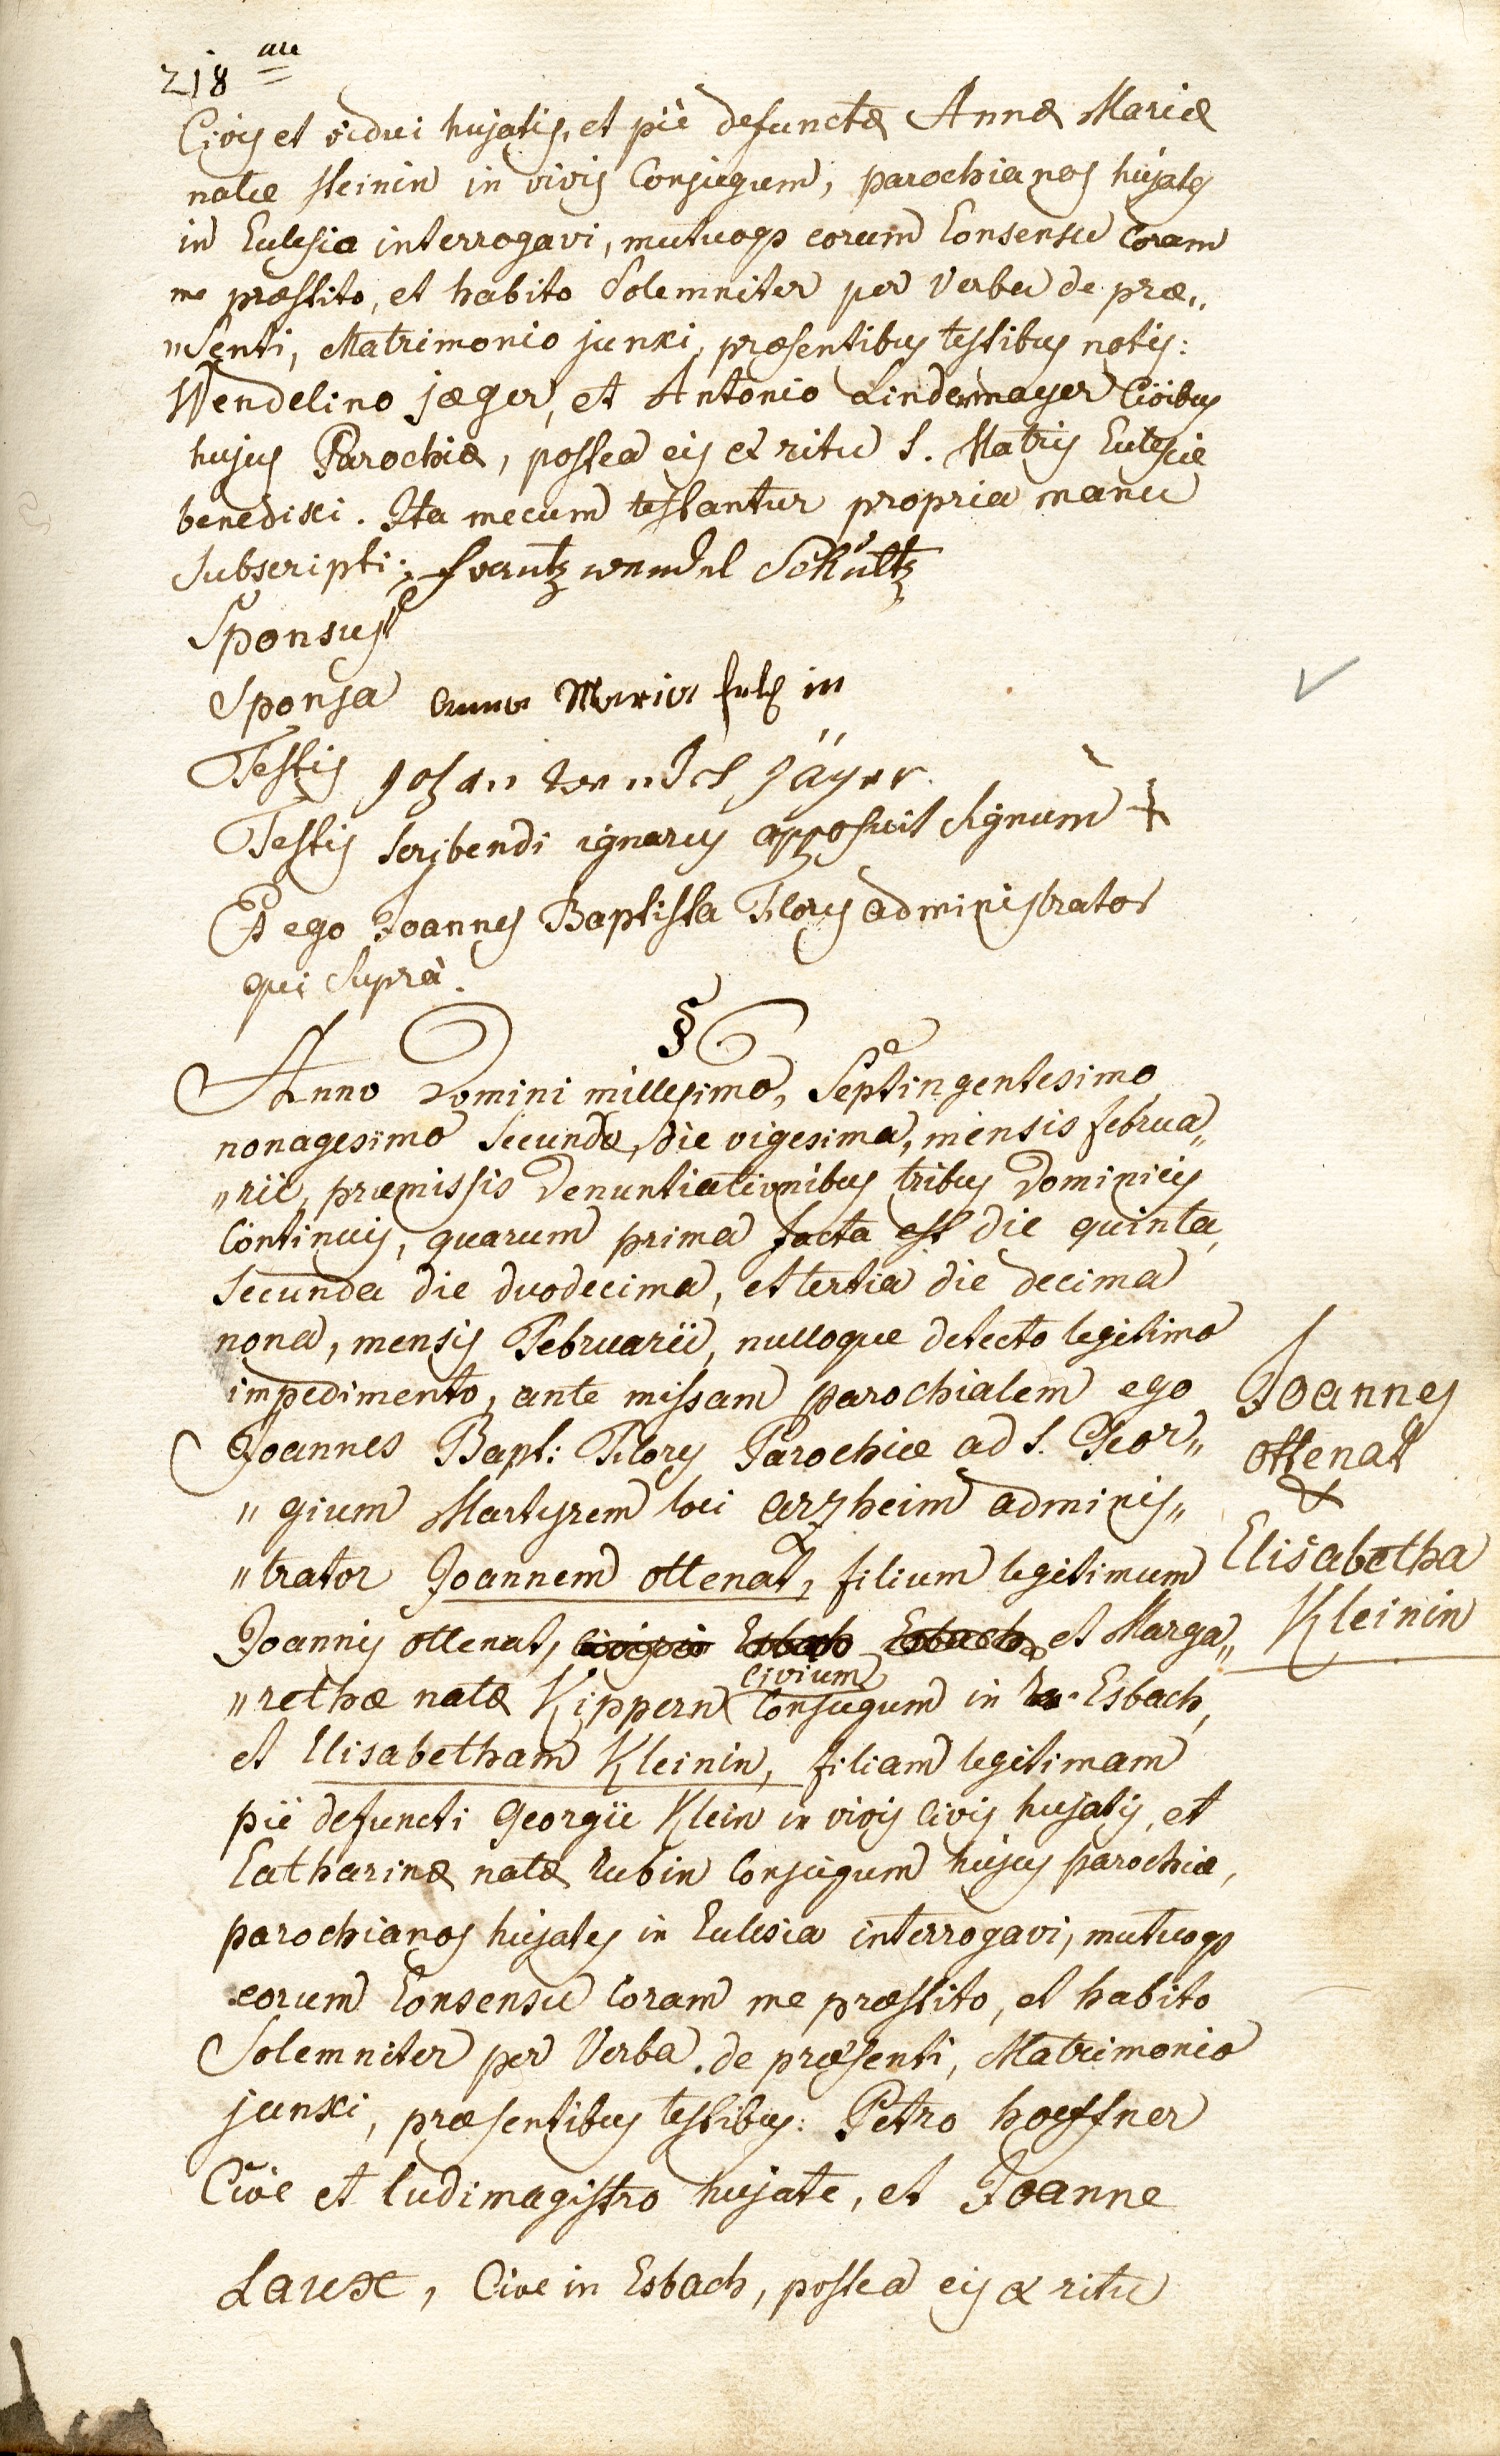 218
Civis et vidui hujatis, et piè defunctæ Annæ Mariæ
natæ Steinin in vivis Conjugum, parochianos hújates
in Ecclesia interrogavi, mutuoq3 eorum Consensu Coram
me præstito, et habito Solemniter per Verba de præ„
„senti, Matrimonio junxi, præsentibus testibus notis:
Wendelino jæger, et Antonio Lindenmayer Civibus
hujus Parochiæ, postea eis ex ritu S. Matris Ecclesiæ
benedixi. Ita mecum testantur propria manu
Subscripti: frantz wendel Schultz
Sponsus
Sponsa anna Maria in
Testis Johan wendel Jäger.
Testis Scribendi ignarus apposuit Signum +
Et ego Joannes Baptista Flory administrator
qui Suprà.
§
Anno Domini millesimo, Septingentesimo
nonagesimo Secundo, die vigesima, mensis februa„
„rii, præmissis Denuntiationibus tribus Dominicis
Continuis, quarum prima facta est die quinta,
Secunda die duodecima, et tertia die decima
nona, mensis Februarii, nulloque detecto legitimo
impedimento, ante missam parochialem ego
Joannes Bapt: Flory Parochiæ ad S. Geor„
„gium Martyrem loci arzheim adminis„
„trator Joannem ottenat, filium legitimum
Joannis ottenat, Esbach Esbach et Marga„
civium
„rethæ natæ Kippern Conjugum in Esbach,
et Elisabetham Kleinin, filiam legitimam
pië defuncti Georgii Klein in vivis Civis hujatis, et
Catharinæ natæ Rubin Conjugum hujus parochiæ,
parochianos hujates in Ecclesia interrogavi, mutuoq3
eorum Consensu Coram me præstito, et habito
Solemniter per Verba de præsenti, Matrimonio
junxi, præsentibus testibus: Petro hoeffner
Cive et ludimagistro hujate, et Joanne
Laux, Cive in Esbach, postea eis ex ritu
Joannes
ottenat
&
Elisabetha
Kleinin